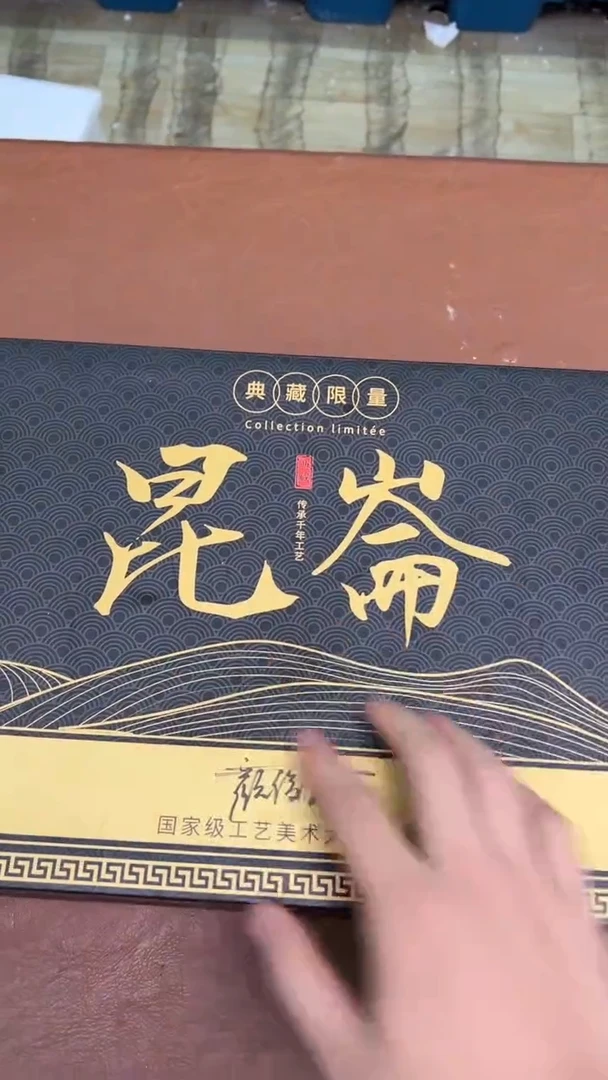 典藏限量
Collection limitée
昆崙
传承千年工艺
国家级工艺美术大